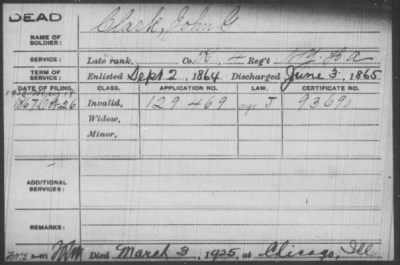 DEAD
NAME OF SOLDIER: Clack, John G
SERVICE: Late rank, Co. Reg't
TERM OF SERVICE: Enlisted Sept 2, 1864 Discharged June 3, 1865
DATE OF FILING. CLASS. APPLICATION NO. LAW. CERTIFICATE NO.
1867 Oct 26 Invalid, 129 469 J 93691
Widow,
Minor,
ADDITIONAL SERVICES:
REMARKS:
Died March 3, 1925, at Chicago, Ill